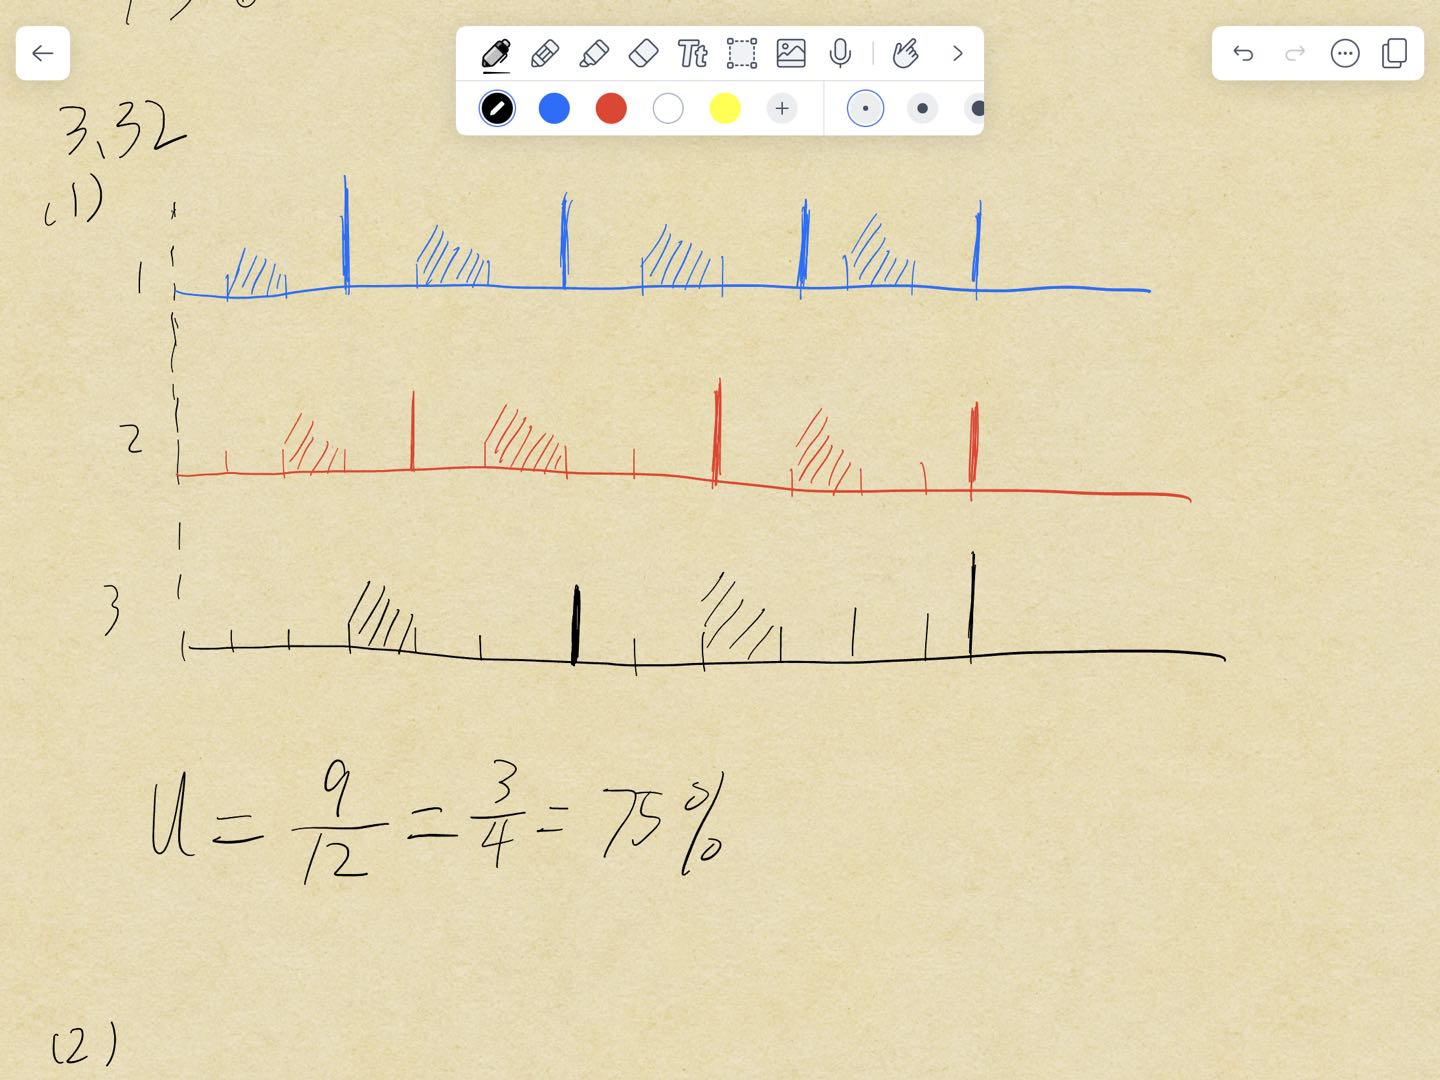 3.32
(1)
1
2
3
U = 9/12 = 3/4 = 75%
(2)